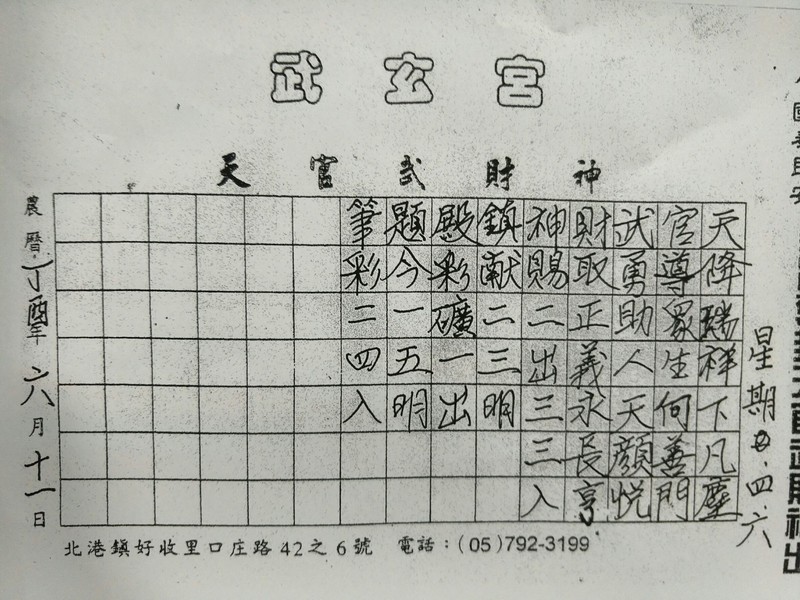 武玄宮
天官武財神
天降瑞祥下凡塵
官導眾生何善門
武勇助人天顏悅
財取正義永長亨
神賜二出三三入
鎮献二三明
殿彩礦一出
題今一五明
筆彩二四入
農曆丁酉年六月十一日
星期二.四.六
北港鎮好收里口庄路42之6號 電話：(05)792-3199